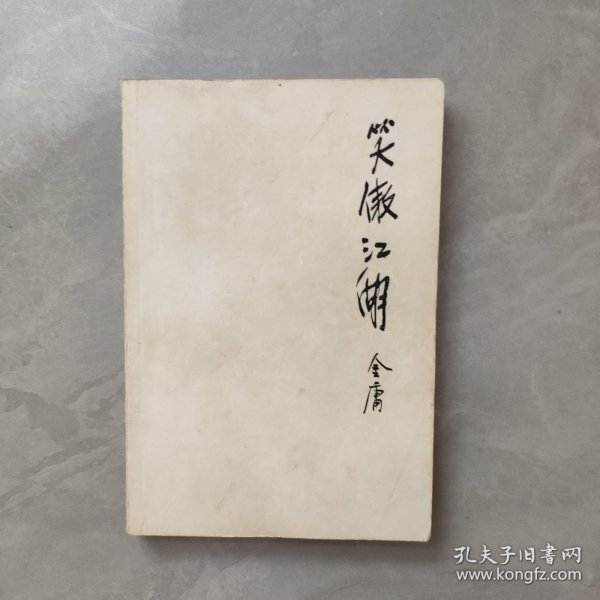 笑傲江湖
金庸
孔夫子旧书网
www.kongfz.com